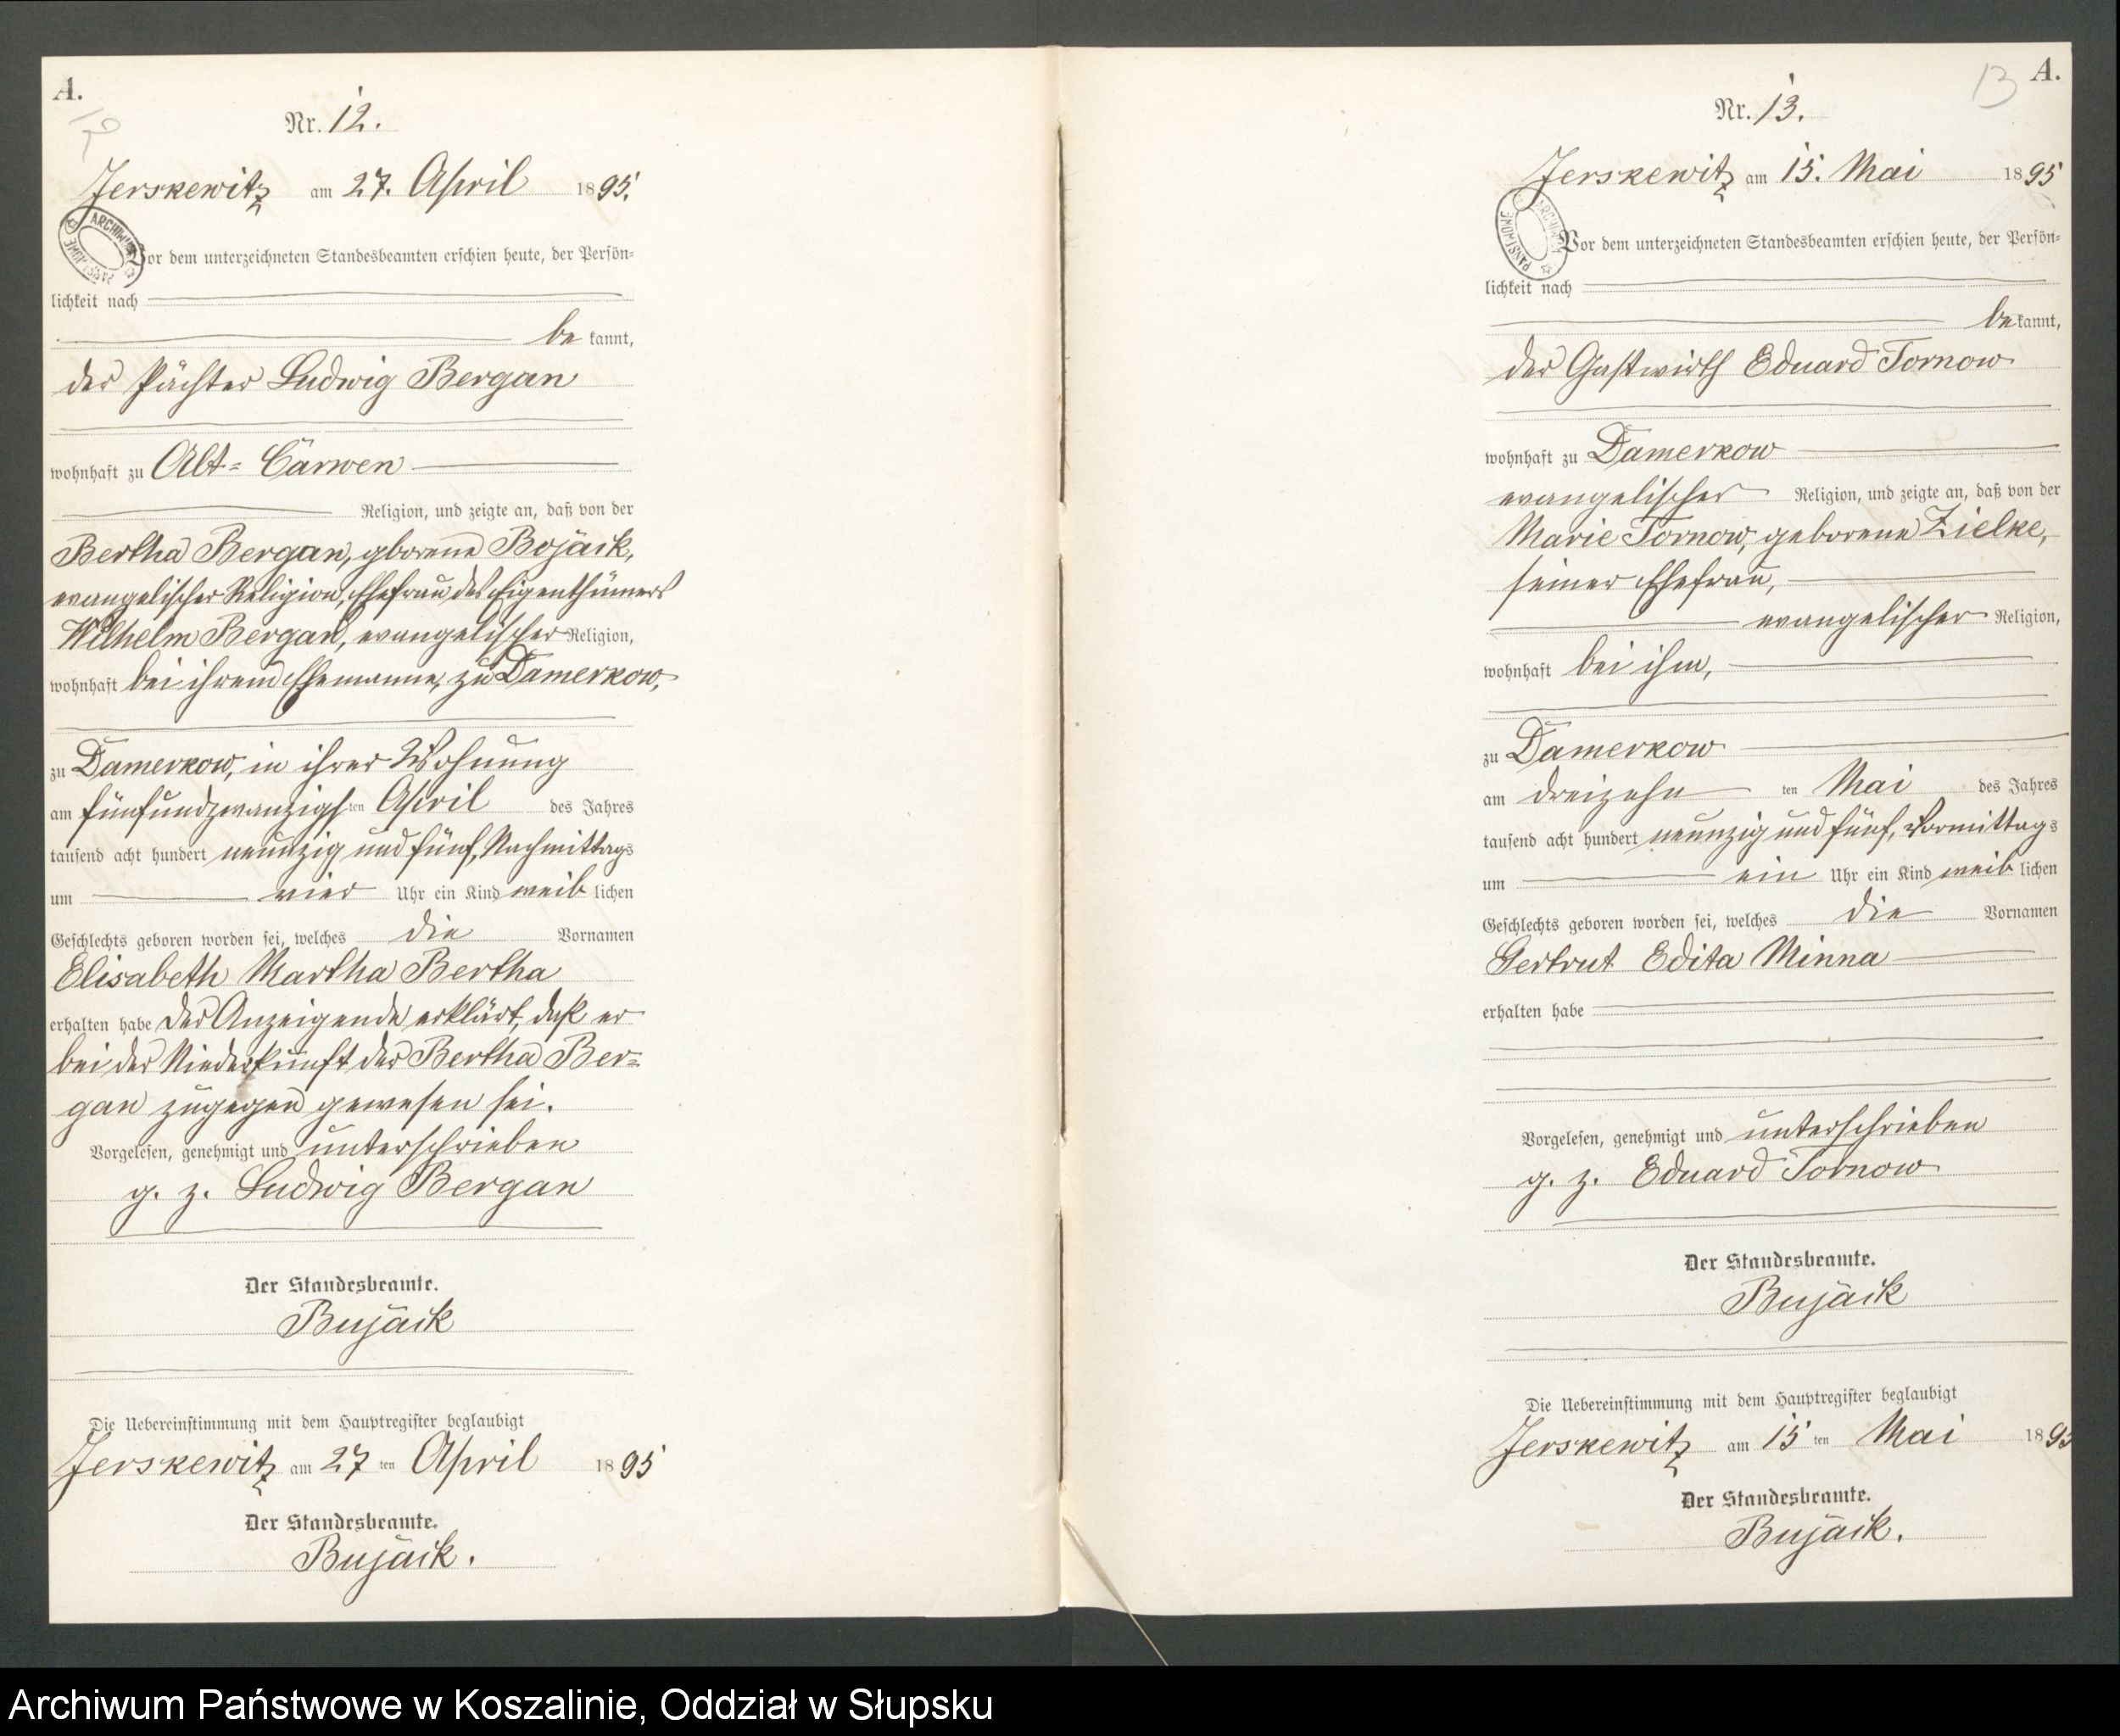 A.
12
Nr. 12.
Jerskewitz am 27. April 1895.
ARCHIWUM
Vor dem unterzeichneten Standesbeamten erschien heute, der Persön-
lichkeit nach
be kannt,
der Pächter Ludwig Bergan
wohnhaft zu Alt-Carwen
Religion, und zeigte an, daß von der
Bertha Bergan, gborene Bojack,
evangelischer Religion, Ehefrau des Eigenthümers
Wilhelm Bergan, evangelischer Religion,
wohnhaft bei ihrem Ehemanne, zu Damerkow,
zu Damerkow, in ihrer Wohnung
am fünfundzwanzigsten April des Jahres
tausend acht hundert neunzig und fünf, Nachmittags
um vier Uhr ein Kind weiblichen
Geschlechts geboren worden sei, welches die Vornamen
Elisabeth Martha Bertha
erhalten habe Der Anzeigende erklärt, daß er
bei der Niederkunft der Bertha Ber-
gan zugegen gewesen sei.
Vorgelesen, genehmigt und unterschrieben
g. z. Ludwig Bergan
Der Standesbeamte.
Bujack
Die Uebereinstimmung mit dem Hauptregister beglaubigt
Jerskewitz am 27 ten April 1895
Der Standesbeamte.
Bujack.
13
A.
Nr. 13.
Jerskewitz am 15. Mai 1895
PAŃSTWOWE ARCHIWUM
Vor dem unterzeichneten Standesbeamten erschien heute, der Persön-
lichkeit nach
be kannt,
der Gastwirth Eduard Tornow
wohnhaft zu Damerkow
evangelischer Religion, und zeigte an, daß von der
Marie Tornow, geborene Zielke,
seiner Ehefrau,
evangelischer Religion,
wohnhaft bei ihm,
zu Damerkow
am dreizehn ten Mai des Jahres
tausend acht hundert neunzig und fünf, Vormittags
um ein Uhr ein Kind weiblichen
Geschlechts geboren worden sei, welches die Vornamen
Gertrut Edita Minna
erhalten habe
Vorgelesen, genehmigt und unterschrieben
g. z. Eduard Tornow
Der Standesbeamte.
Bujack
Die Uebereinstimmung mit dem Hauptregister beglaubigt
Jerskewitz am 15 ten Mai 1895
Der Standesbeamte.
Bujack.
Archiwum Państwowe w Koszalinie, Oddział w Słupsku